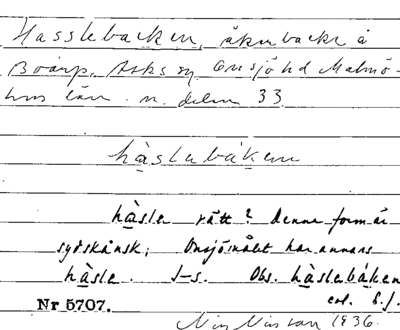 Hasslebacken, åkerbacke å
Boarp, Asks sn, Onsjö hd Malmö-
hus län. n. delen 33
hàslebáken
hàsle rätt? Denna form är
sydskånsk; Onsjömålet har annars
hàsle. J-s. Obs. hàslebáken
enl. E.J.
Nr 5707.
Nils Nilsson 1936.